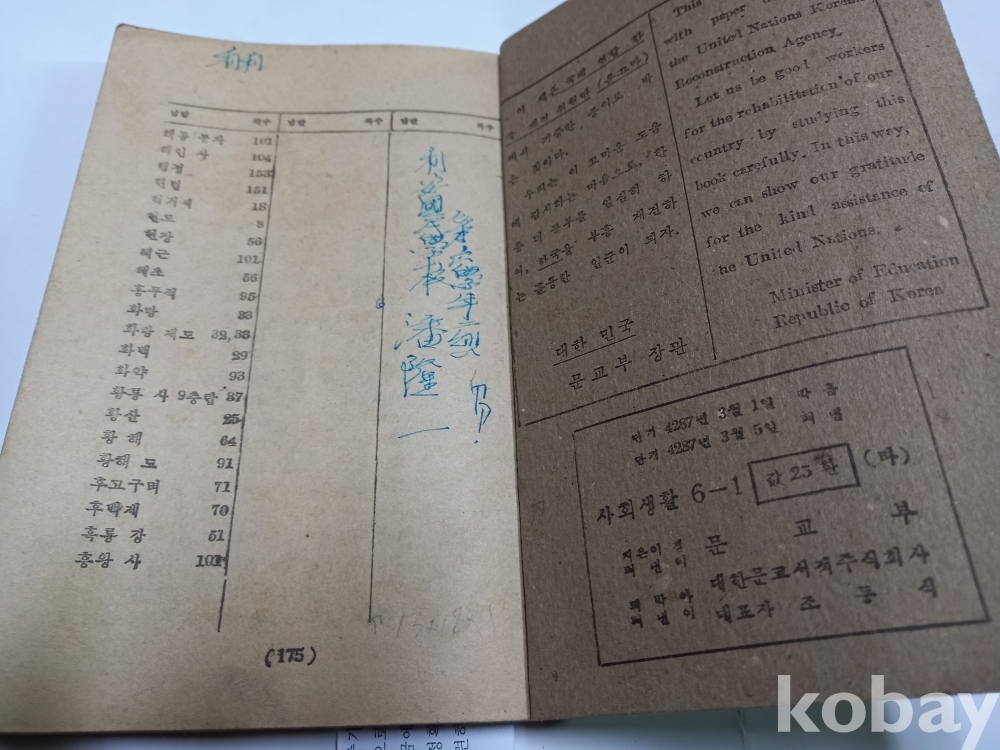 낱말 쪽수 낱말 쪽수 낱말 쪽수
해동 통자 101
해인 사 104
행정 153
헌법 151
혁거세 18
현도 8
현장 56
혜근 101
혜초 56
홍두적 95
화랑 33
화랑 제도 32,33
화백 29
화약 93
황룡 사 9층탑 37
황산 25
황 해 64
황해 도 91
후고구려 71
후백제 70
흑룡 강 51
흥왕 사 101
學校 潘隆一
第六學年
(175)
이 책은 국제 연합 한
국 재건 위원단 (운끄라)
에서 기증한 종이로 박
은 것이다.
우리는 이 고마운 도움
에 감사하는 마음으로, 한
층 더 공부를 열심히 하
여, 한국을 부흥 재건하
는 훌륭한 일군이 되자.
대한 민국
문교부 장관
This
with paper
the United Nations Korea
Reconstruction Agency.
Let us be good workers
for the rehabilitation of our
country by studying this
book carefully. In this way,
we can show our gratitude
for the kind assistance of
he United Nations.
Minister of Education
Republic of Korea
단기 4287년 3월 1일 박음
단기 4287년 3월 5일 펴냄
사회생활 6-1 값 25환 (타)
지은이 겸
펴낸이 문 교 부
박아
펴낸이 대한문교서적주식회사
대표자 조 동 식
kobay